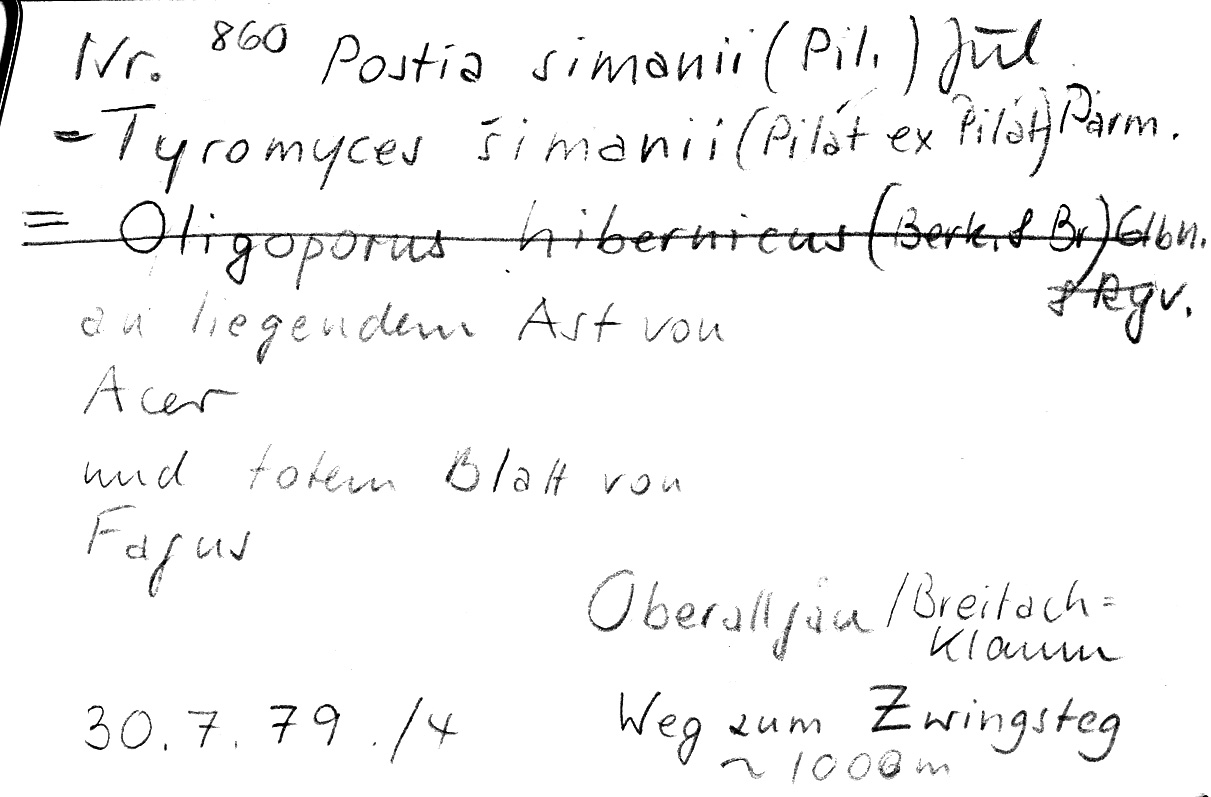 Nr. 860 Postia simanii (Pil.) Jül
= Tyromyces šimanii (Pilát ex Pilát) Parm.
= Oligoporus hibernicus (Berk. & Br) Glbn.
& Ryv.
an liegendem Ast von
Acer
und totem Blatt von
Fagus
Oberallgäu / Breitach=
Klamm
30.7.79./4 Weg zum Zwingsteg
~ 1000m